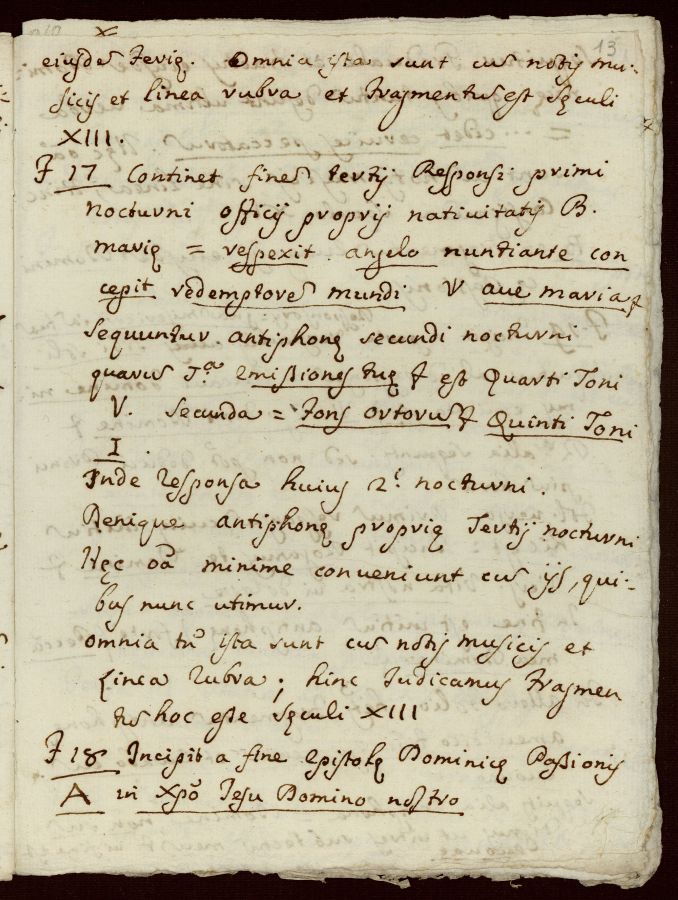 13
eiusdē Ferię. Omnia ista sunt cū notis mu-
sicis et linea rubra et Fragmentū est Sęculi
XIII.
F 17 Continet finē tertij Responsi primi
nocturni officij proprij nativitatis B.
marię = respexit. angelo nuntiante con
cepit redemptorē mundi V ave maria
Sequuntur antiphonę secundi nocturni
quarū I.ª emissiones tuę est Quarti Toni
V. Secunda = Fons ortorū Quinti Toni
I.
Inde responsa huius 2.i nocturni.
Denique antiphonę proprię Tertij nocturni
Hęc oā minime conveniunt cū ijs, qui-
bus nunc utimur.
omnia tn̄ ista sunt cū notis musicis et
Linea rubra; hinc Iudicamus Fragmen
tū hoc esse Sęculi XIII
F 18 Incipit a fine epistolę Dominicę Paßionis
A in Xpō Iesu Domino nostro